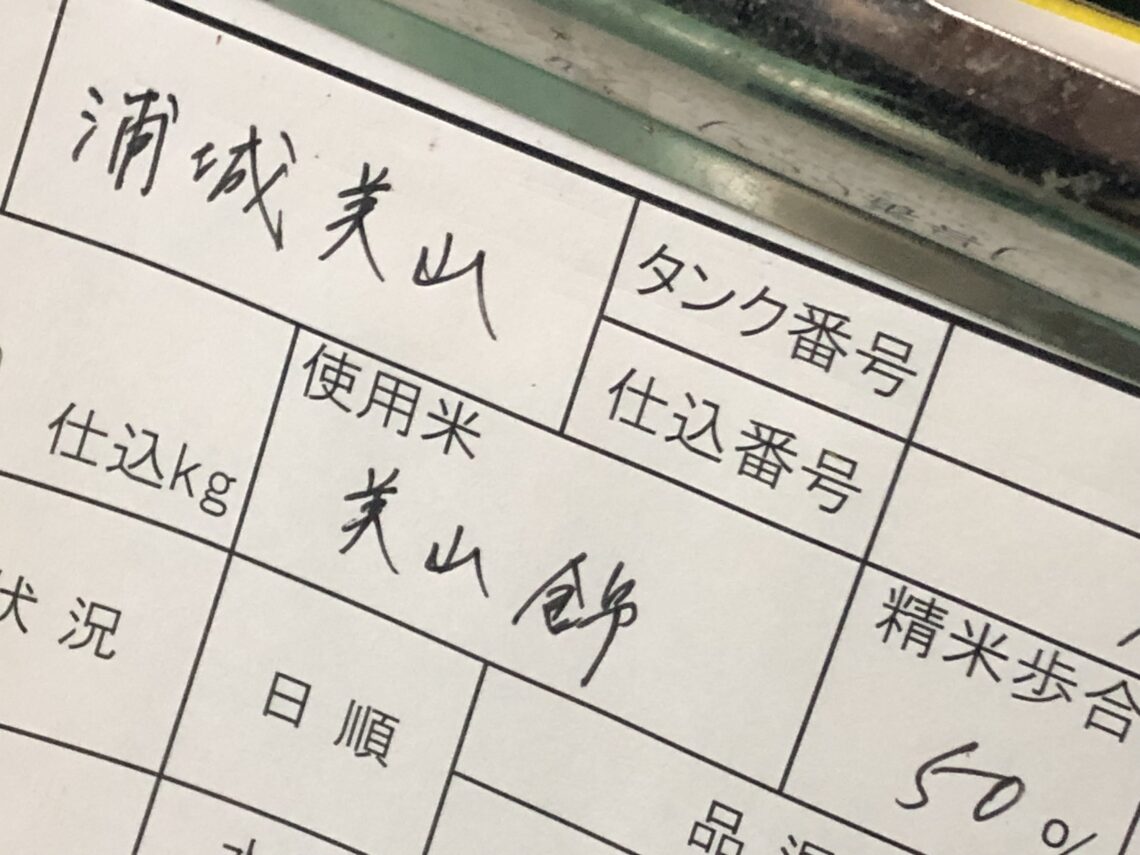 浦城美山
タンク番号
仕込番号
仕込kg
使用米
美山錦
精米歩合
50%
状 況
日 順
品 温